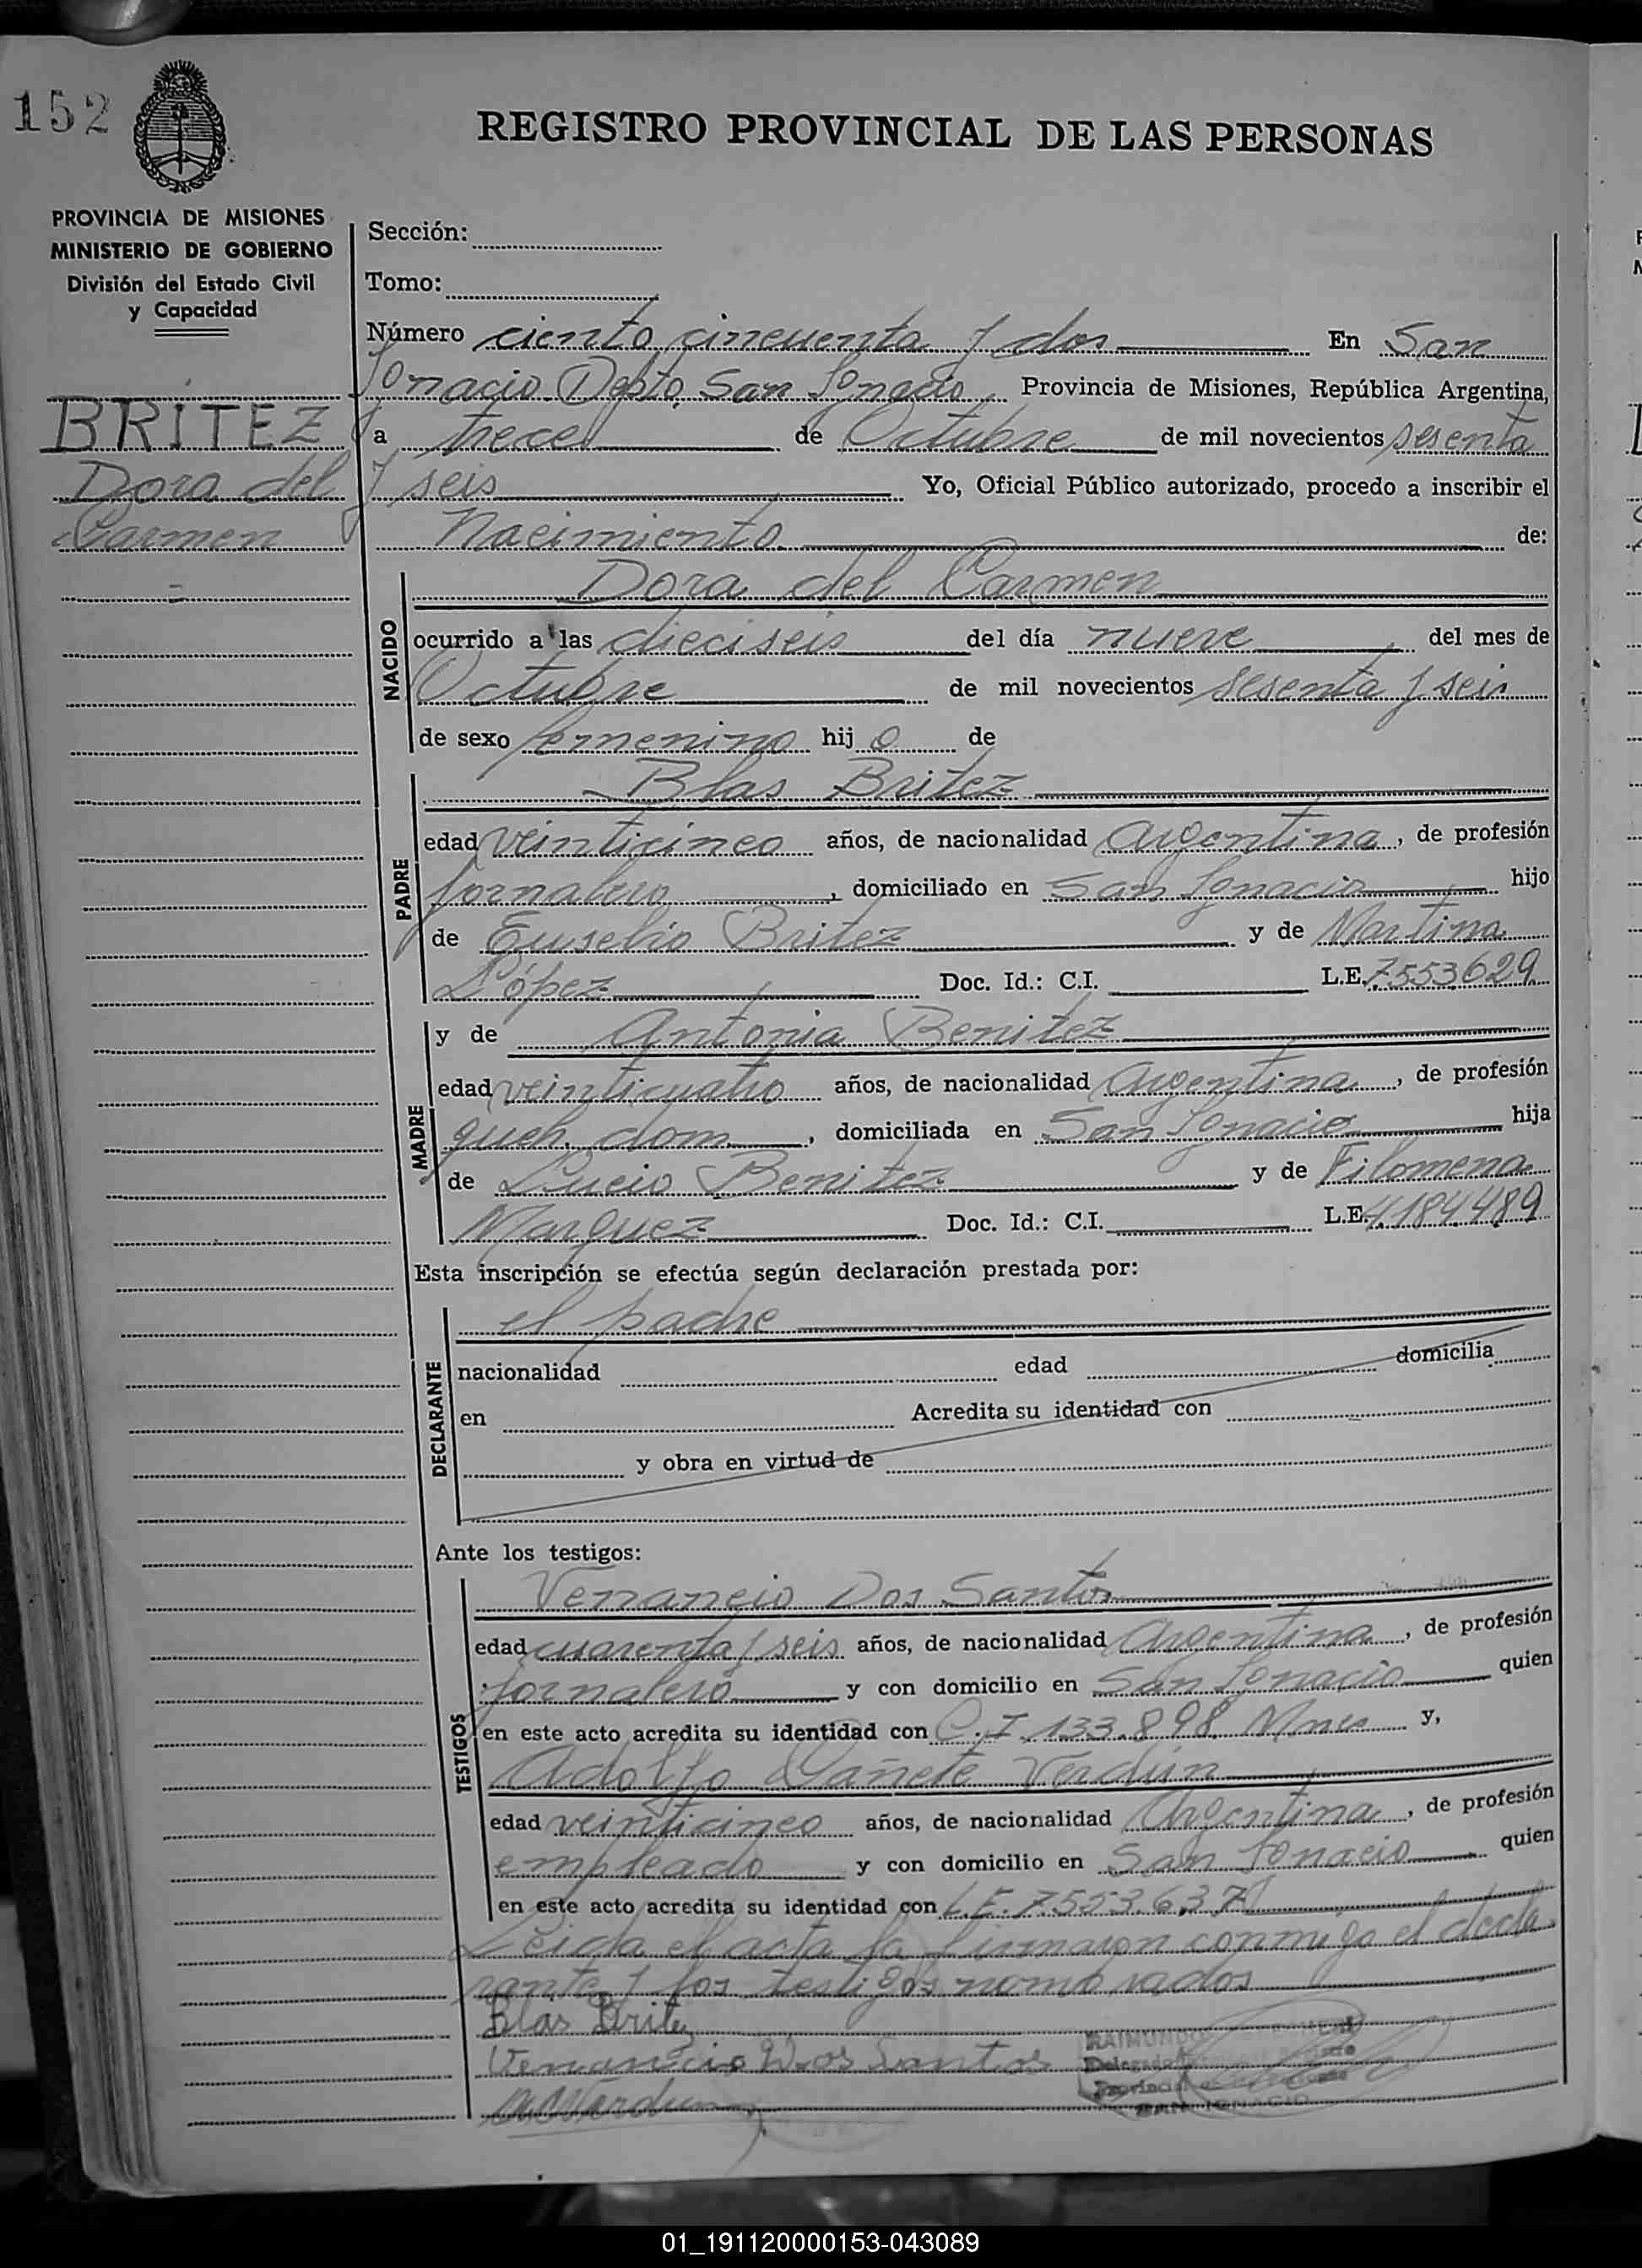 152
REGISTRO PROVINCIAL DE LAS PERSONAS
PROVINCIA DE MISIONES
MINISTERIO DE GOBIERNO
División del Estado Civil
y Capacidad
BRITEZ
Dora del
Carmen
Sección:
Tomo:
Número ciento cincuenta y dos En San
Ignacio Depto. San Ignacio Provincia de Misiones, República Argentina,
a trece de Octubre de mil novecientos sesenta
y seis Yo, Oficial Público autorizado, procedo a inscribir el
Nacimiento de:
NACIDO
Dora del Carmen
ocurrido a las dieciseis del día nueve del mes de
Octubre de mil novecientos sesenta y seis
de sexo femenino hij o de
PADRE
Blas Britez
edad veinticinco años, de nacionalidad Argentina, de profesión
jornalero, domiciliado en San Ignacio hijo
de Eusebio Britez y de Martina
López Doc. Id.: C.I. L.E. 7553629
MADRE
y de Antonia Benitez
edad veinticuatro años, de nacionalidad Argentina, de profesión
queh. dom., domiciliada en San Ignacio hija
de Lucio Benitez y de Filomena
Marquez Doc. Id.: C.I. L.E. 4184489
Esta inscripción se efectúa según declaración prestada por:
DECLARANTE
el padre
nacionalidad edad domicilia
en Acredita su identidad con
y obra en virtud de
Ante los testigos:
TESTIGOS
Venancio Dos Santos
edad cuarenta y seis años, de nacionalidad Argentina, de profesión
jornalero y con domicilio en San Ignacio quien
en este acto acredita su identidad con C.I. 133.898 Mnes y,
Adolfo Cañete Verdún
edad veinticinco años, de nacionalidad Argentina, de profesión
empleado y con domicilio en San Ignacio quien
en este acto acredita su identidad con L.E. 7.553.637
Leida el acta la firmaron conmigo el decla
rante y los testigos nombrados
Blas Britez
Venancio Dos Santos
Verdun
RAIMUNDO
Delegado
Provincial
SAN IGNACIO
01_191120000153-043089